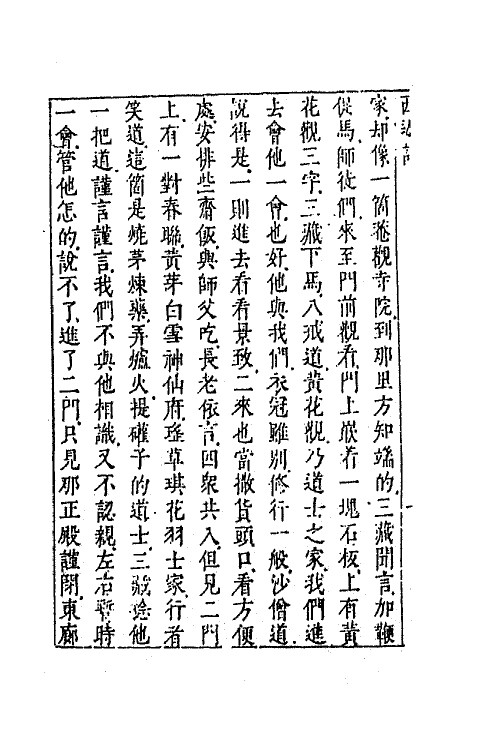 西遊記
家却像一箇菴觀寺院到那里方知端的三藏聞言加鞭
促馬師徒們來至門前觀看門上嵌着一塊石板上有黃
花觀三字三藏下馬八戒道黃花觀乃道士之家我們進
去會他一會也好他與我們衣冠雖別修行一般沙僧道
說得是一則進去看看景致二來也當撒貨頭口看方便
處安排些齋飯與師父吃長老依言四衆共入但見二門
上有一對春聯黃芽白雪神仙府瑤草琪花羽士家行者
笑道這箇是燒茅煉藥弄爐火提礶子的道士三藏捻他
一把道謹言謹言我們不與他相識又不認親左右暫時
一會管他怎的說不了進了二門只見那正殿謹閉東廊